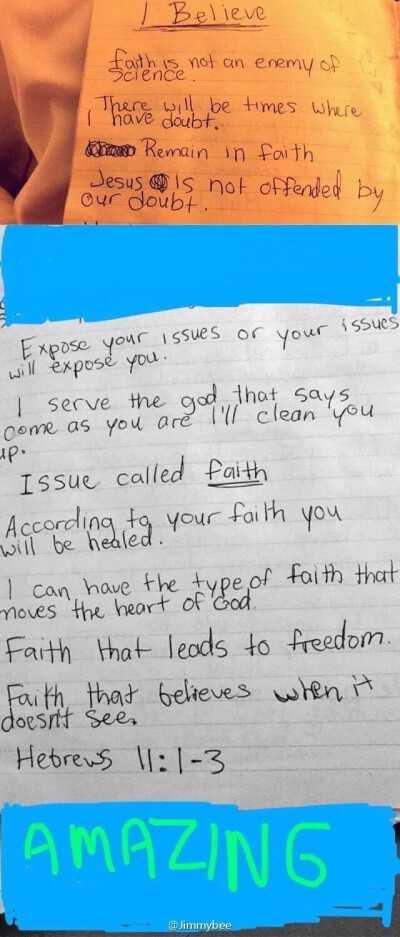 I Believe
Faith is not an enemy of
Science.
There will be times where
I have doubt.
Remain in faith
Jesus is not offended by
our doubt.
Expose your issues or your issues
will expose you.
I serve the god that says
come as you are I'll clean you
up.
Issue called faith
According to your faith you
will be healed.
I can have the type of faith that
moves the heart of God.
Faith that leads to freedom.
Faith that believes when it
doesn't see.
Hebrews 11:1-3
AMAZING
@Jimmybee